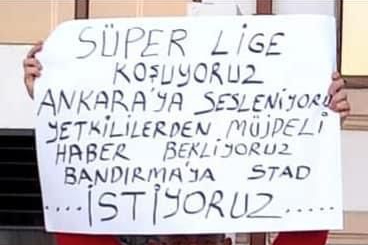 SÜPER LİGE
KOŞUYORUZ
ANKARA'YA SESLENİYORU
YETKİLİLERDEN MÜJDELİ
HABER BEKLİYORUZ
BANDIRMA'YA STAD
....İSTİYORUZ.....